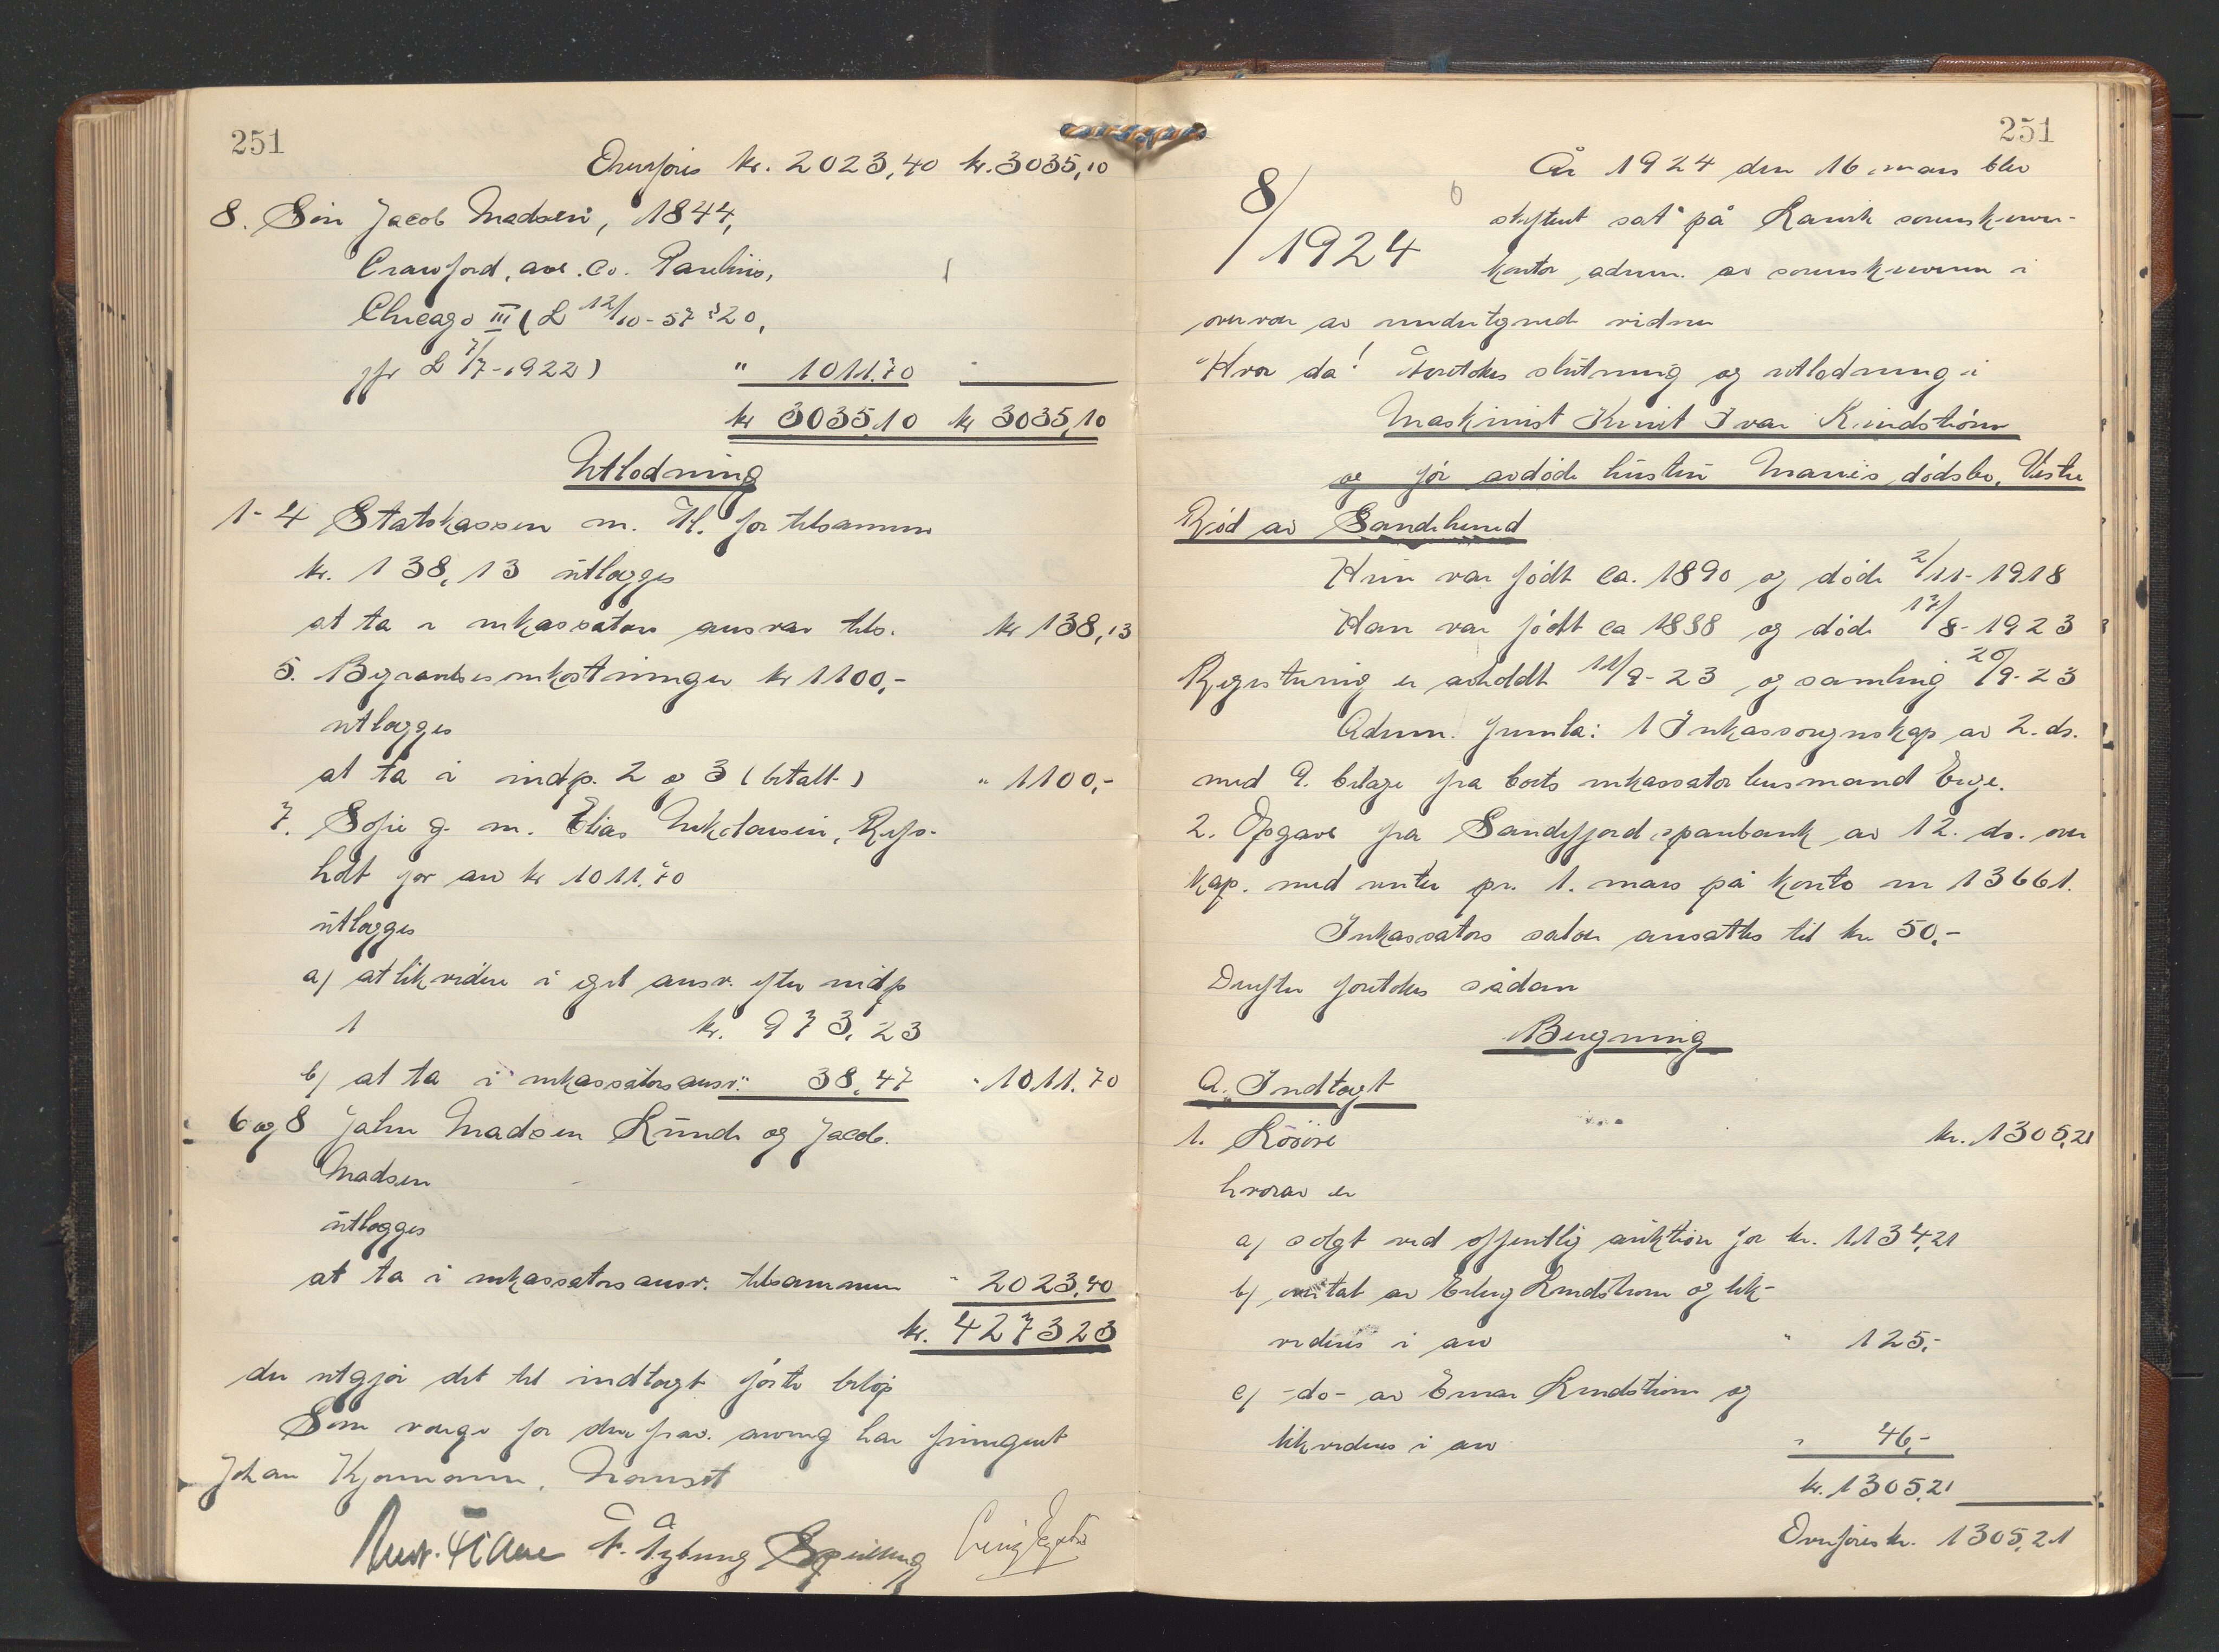 251
Overføres kr. 2023,40 kr. 3035,10
8. Søn Jacob Madsen, 1844,
Crawford, ave. Co.
Chicago III (L 12/10-57 320,
jfr L 7/7-1922) " 1011.70
kr 3035,10 kr 3035,10
Utlodning
1-4 Statskassen m. fl. for tilsammen
kr. 138,13 utlægges
at ta i inkassators ansvar tils. kr 138,13
5. Begravelsesomkostninger kr 1100,-
utlægges
at ta i indp. 2 og 3 (betalt) " 1100,-
7. Sofie g. m. Elias Nikolaisen,
holt for arv kr 1011.70
utlægges
a) at likvidere i eget ansv. efter indp
1 kr. 973,23
b) at ta i inkassators ansv. " 38,47 " 1011.70
6 og 8 John Madsen Lunde og Jacob
Madsen
utlægges
at ta i inkassators ansv. tilsammen " 2023,40
kr. 4273 23
der utgjør det til indtægt førte beløp
Som verge for den frav. arving har fungert
Johan
251
8/1924
År 1924 den 16. mars blev
skifteret sat på Larvik sorenskriver-
kontor, adm. av sorenskriveren i
overvær av undertegnede vidner
Hvor da! Foretokes slutning og utlodning i
Maskinist Knut Ivar Lindstrøm
og før avdøde hustru Maries dødsbo, Vestre
Rød av Sandeherred
Hun var født ca. 1890 og døde 2/11-1918
Han var født ca 1888 og døde 17/8-1923
Registrering er avholdt 11/9-23 og samling 20/9-23
Adm. fremla: 1 Inkassoregnskap av 2. ds.
med 9 bilage fra boets inkassator lensmand
2. Opgave fra Sandefjord sparebank av 12. ds. over
kap. med renter pr. 1. mars på konto nr 13661.
Inkassators salær ansattes til kr 50,-
Derefter foretokes sådan
Beregning
A. Indtægt
1. Løsøre kr. 1305,21
hvorav er
a) solgt ved offentlig auktion for kr. 1134,21
b) overtat av Erling Lindstrøm og lik-
videres i arv " 125,-
c) -do- av Einar Lindstrøm og
likvideres i arv " 46,-
kr. 1305,21
Overføres kr. 1305,21